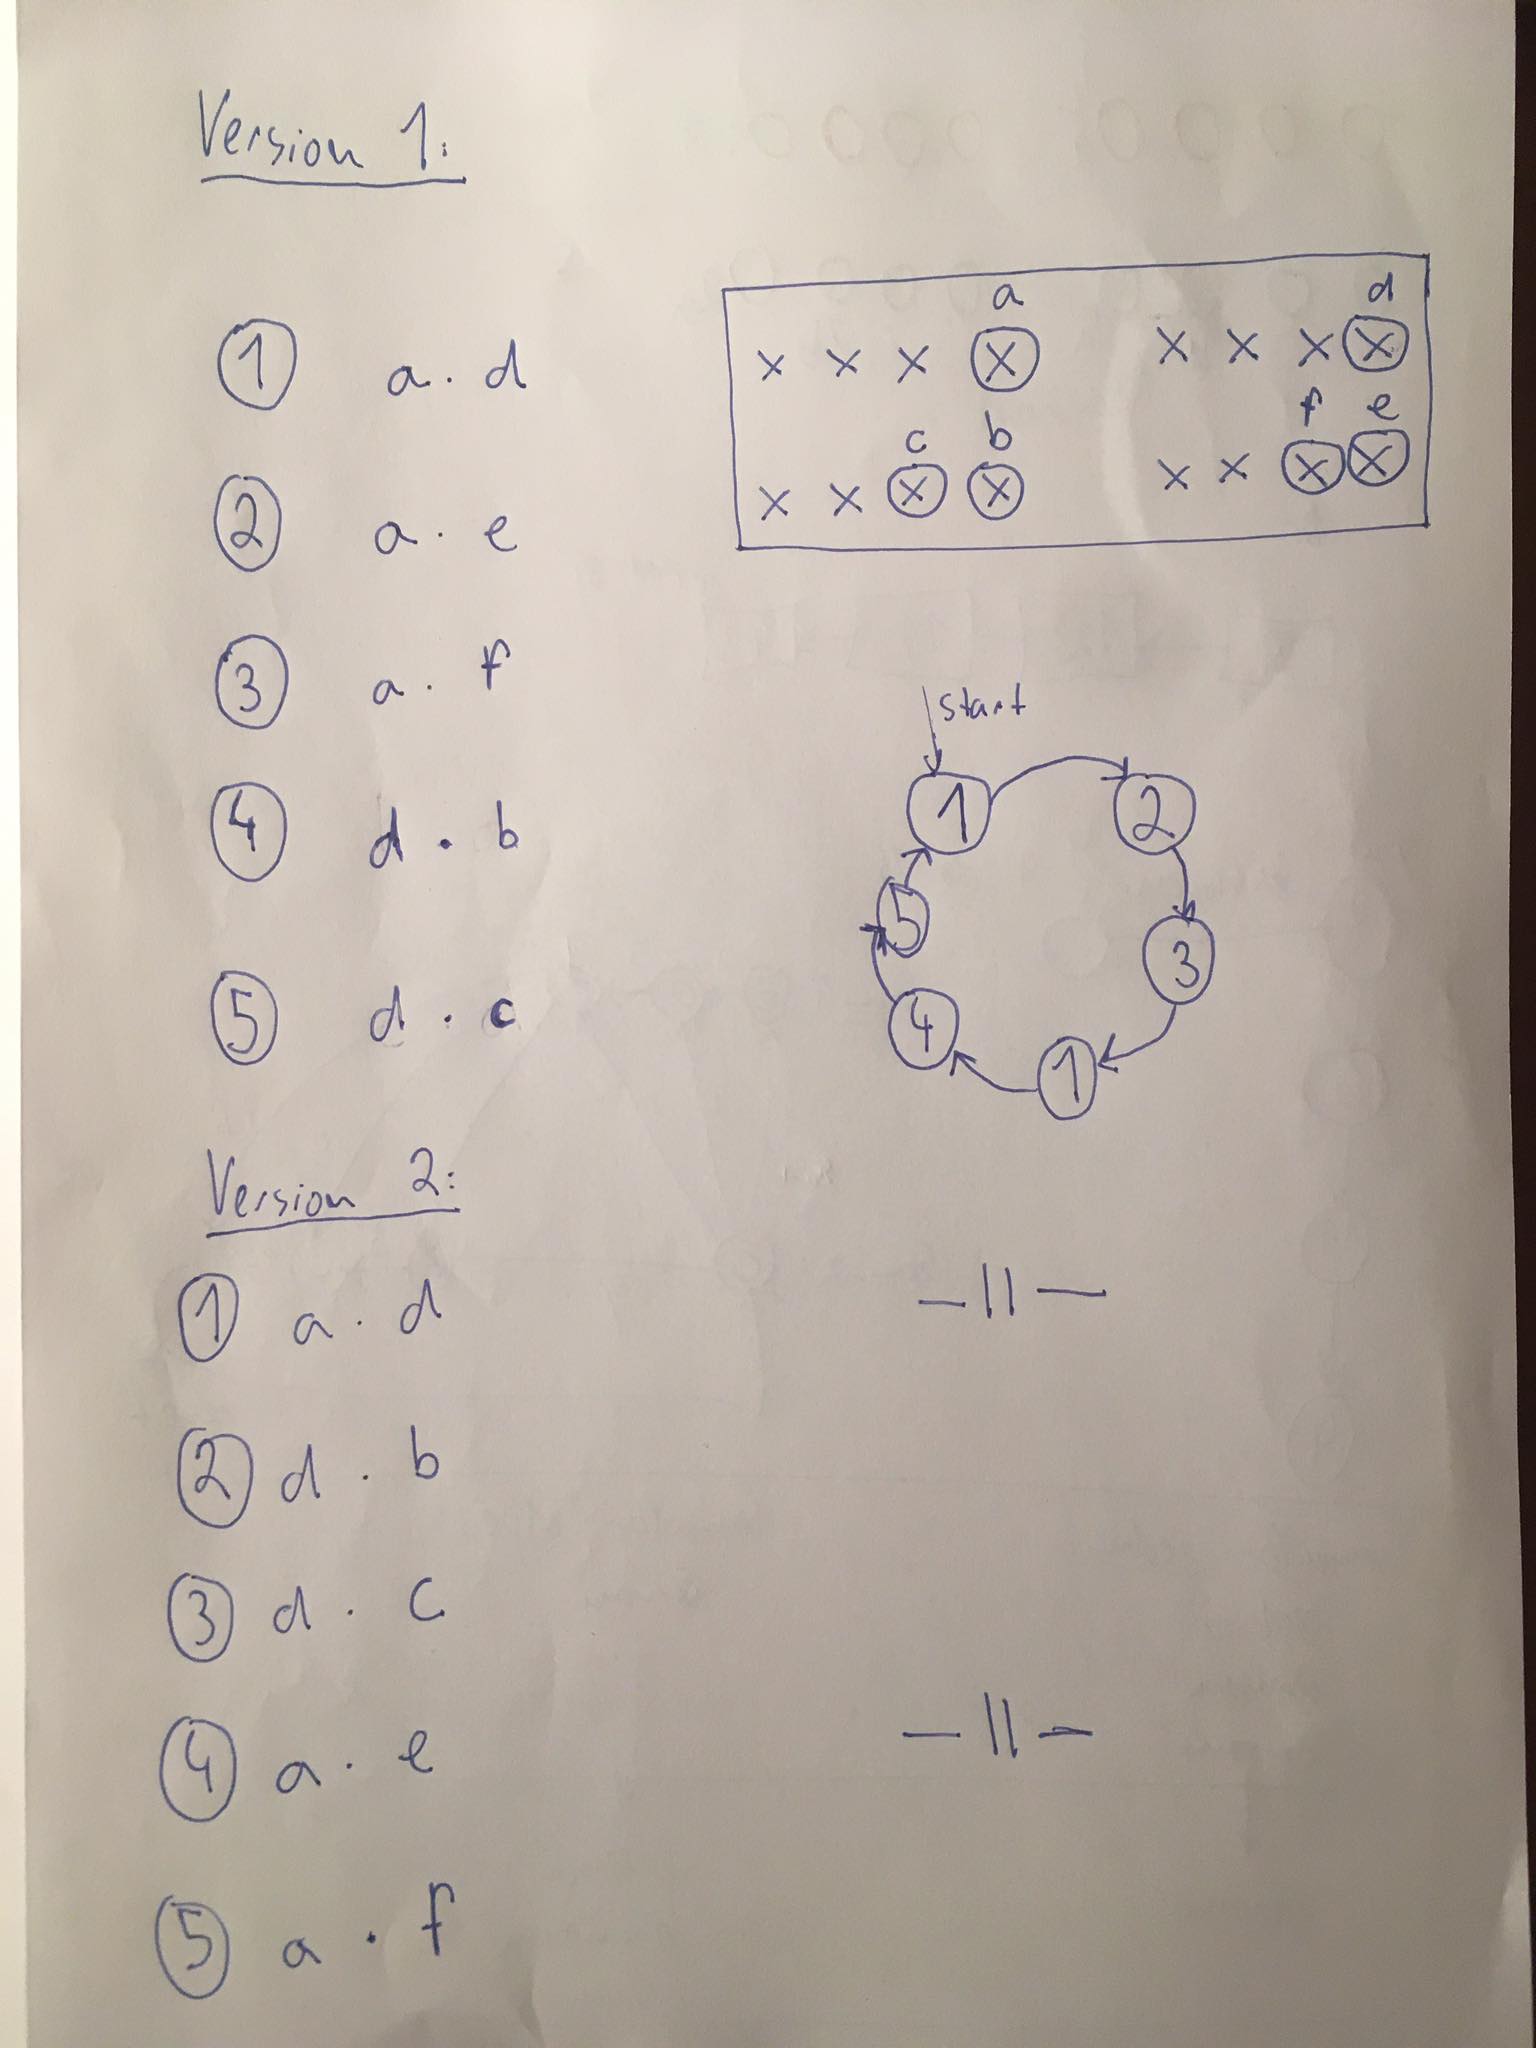 Version 1:
① a · d
② a · e
③ a · f
④ d · b
⑤ d · c
a d
x x x ⓧ x x x ⓧ
c b f e
x x ⓧ ⓧ x x ⓧ ⓧ
start
① ②
⑤ ③
④ ①
Version 2:
① a · d
② d · b
③ d · c
④ a · e
⑤ a · f
–||–
–||–